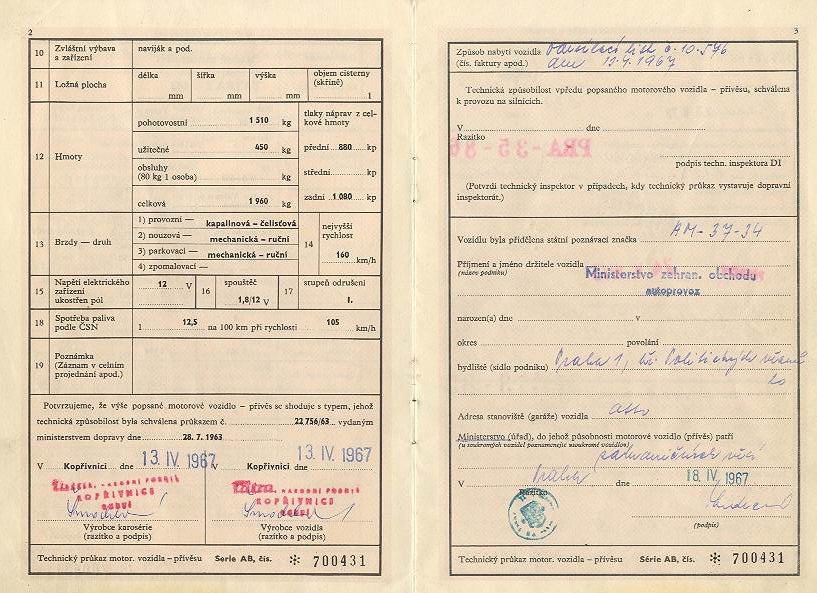 2
10 Zvláštní výbava a zařízení naviják a pod.
11 Ložná plocha délka mm šířka mm výška mm objem cisterny (skříně) l
12 Hmoty
pohotovostní 1 510 kg
užitečné 450 kg
obsluhy (80 kg 1 osoba) kg
celková 1 960 kg
tlaky náprav z celkové hmoty
přední 880 kp
střední kp
zadní 1 080 kp
13 Brzdy – druh
1) provozní — kapalinová – čelisťová
2) nouzová — mechanická – ruční
3) parkovací — mechanická – ruční
4) zpomalovací —
14 nejvyšší rychlost
160 km/h
15 Napětí elektrického zařízení ukostřen pól 12 V
16 spouštěč 1,8/12 V
17 stupeň odrušení I.
18 Spotřeba paliva podle ČSN l 12,5 na 100 km při rychlosti 105 km/h
19 Poznámka (Záznam v celním projednání apod.)
Potvrzujeme, že výše popsané motorové vozidlo – přívěs se shoduje s typem, jehož
technická způsobilost byla schválena průkazem č. 22 756/63 vydaným
ministerstvem dopravy dne 28. 7. 1963
V Kopřivnici dne 13. IV. 1967 V Kopřivnici dne 13. IV. 1967
Tatra, NÁRODNÍ PODNIK Tatra, NÁRODNÍ PODNIK
KOPŘIVNICE KOPŘIVNICE
Výrobce karosérie Výrobce vozidla
(razítko a podpis) (razítko a podpis)
Technický průkaz motor. vozidla – přívěsu Série AB, čís. ✻ 700431
3
Způsob nabytí vozidla Odesílací list č. 10-576
(čís. faktury apod.) dne 13.4.1967
Technická způsobilost vpředu popsaného motorového vozidla – přívěsu, schválena
k provozu na silnicích.
V dne
Razítko
PRA-35-86
podpis techn. inspektora DI
(Potvrdí technický inspektor v případech, kdy technický průkaz vystavuje dopravní
inspektorát.)
Vozidlu byla přidělena státní poznávací značka AM-37-34
Příjmení a jméno držitele vozidla
(název podniku)
Ministerstvo zahran. obchodu
autoprovoz
narozen(a) dne v
okres povolání
bydliště (sídlo podniku) Praha 1, tř. Politických vězňů
20
Adresa stanoviště (garáže) vozidla
Ministerstvo (úřad), do jehož působnosti motorové vozidlo (přívěs) patří
(u soukromých vozidel poznamenejte soukromé vozidlo)
zahraničních věcí
V Praha dne 18. IV. 1967
Razítko
(podpis)
Technický průkaz motor. vozidla – přívěsu Série AB, čís. ✻ 700431